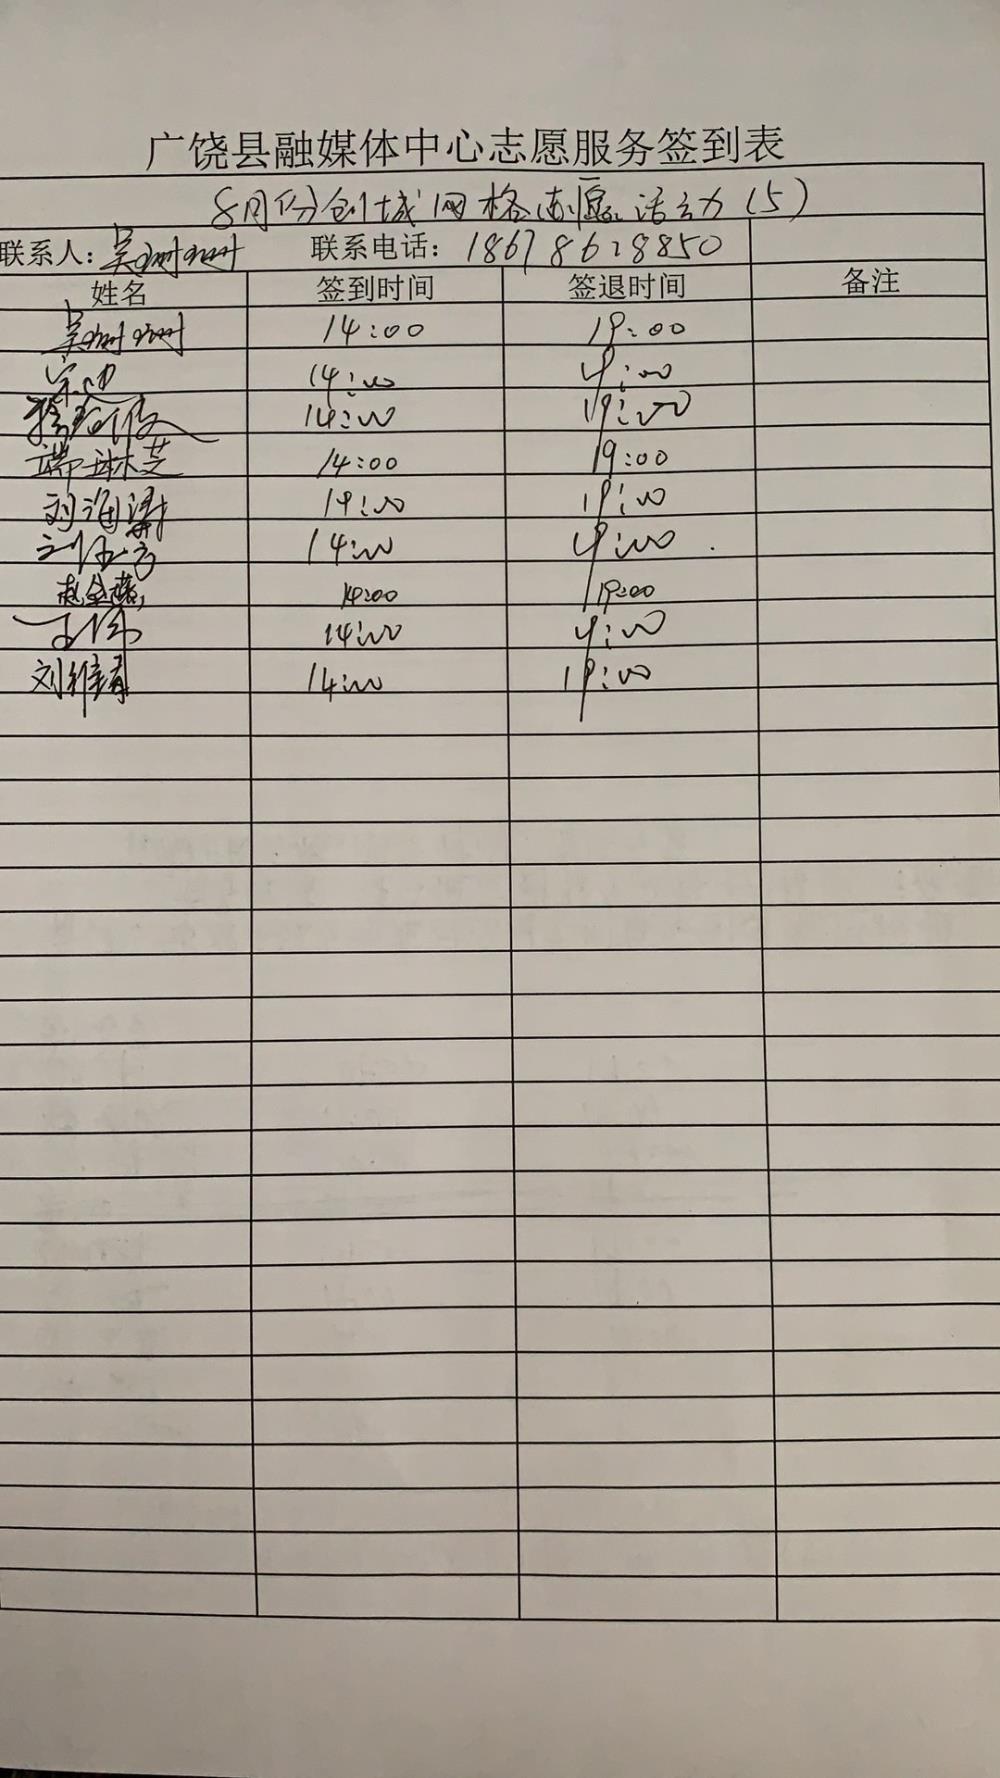 广饶县融媒体中心志愿服务签到表
8月份创城网格志愿活动(5)
联系人：吴珊珊 联系电话：18678628850
姓名 签到时间 签退时间 备注
吴珊珊 14:00 19:00
14:00 19:00
14:00 19:00
端琳芝 14:00 19:00
刘海涛 14:00 19:00
14:00 19:00
14:00 19:00
14:00 19:00
刘维青 14:00 19:00